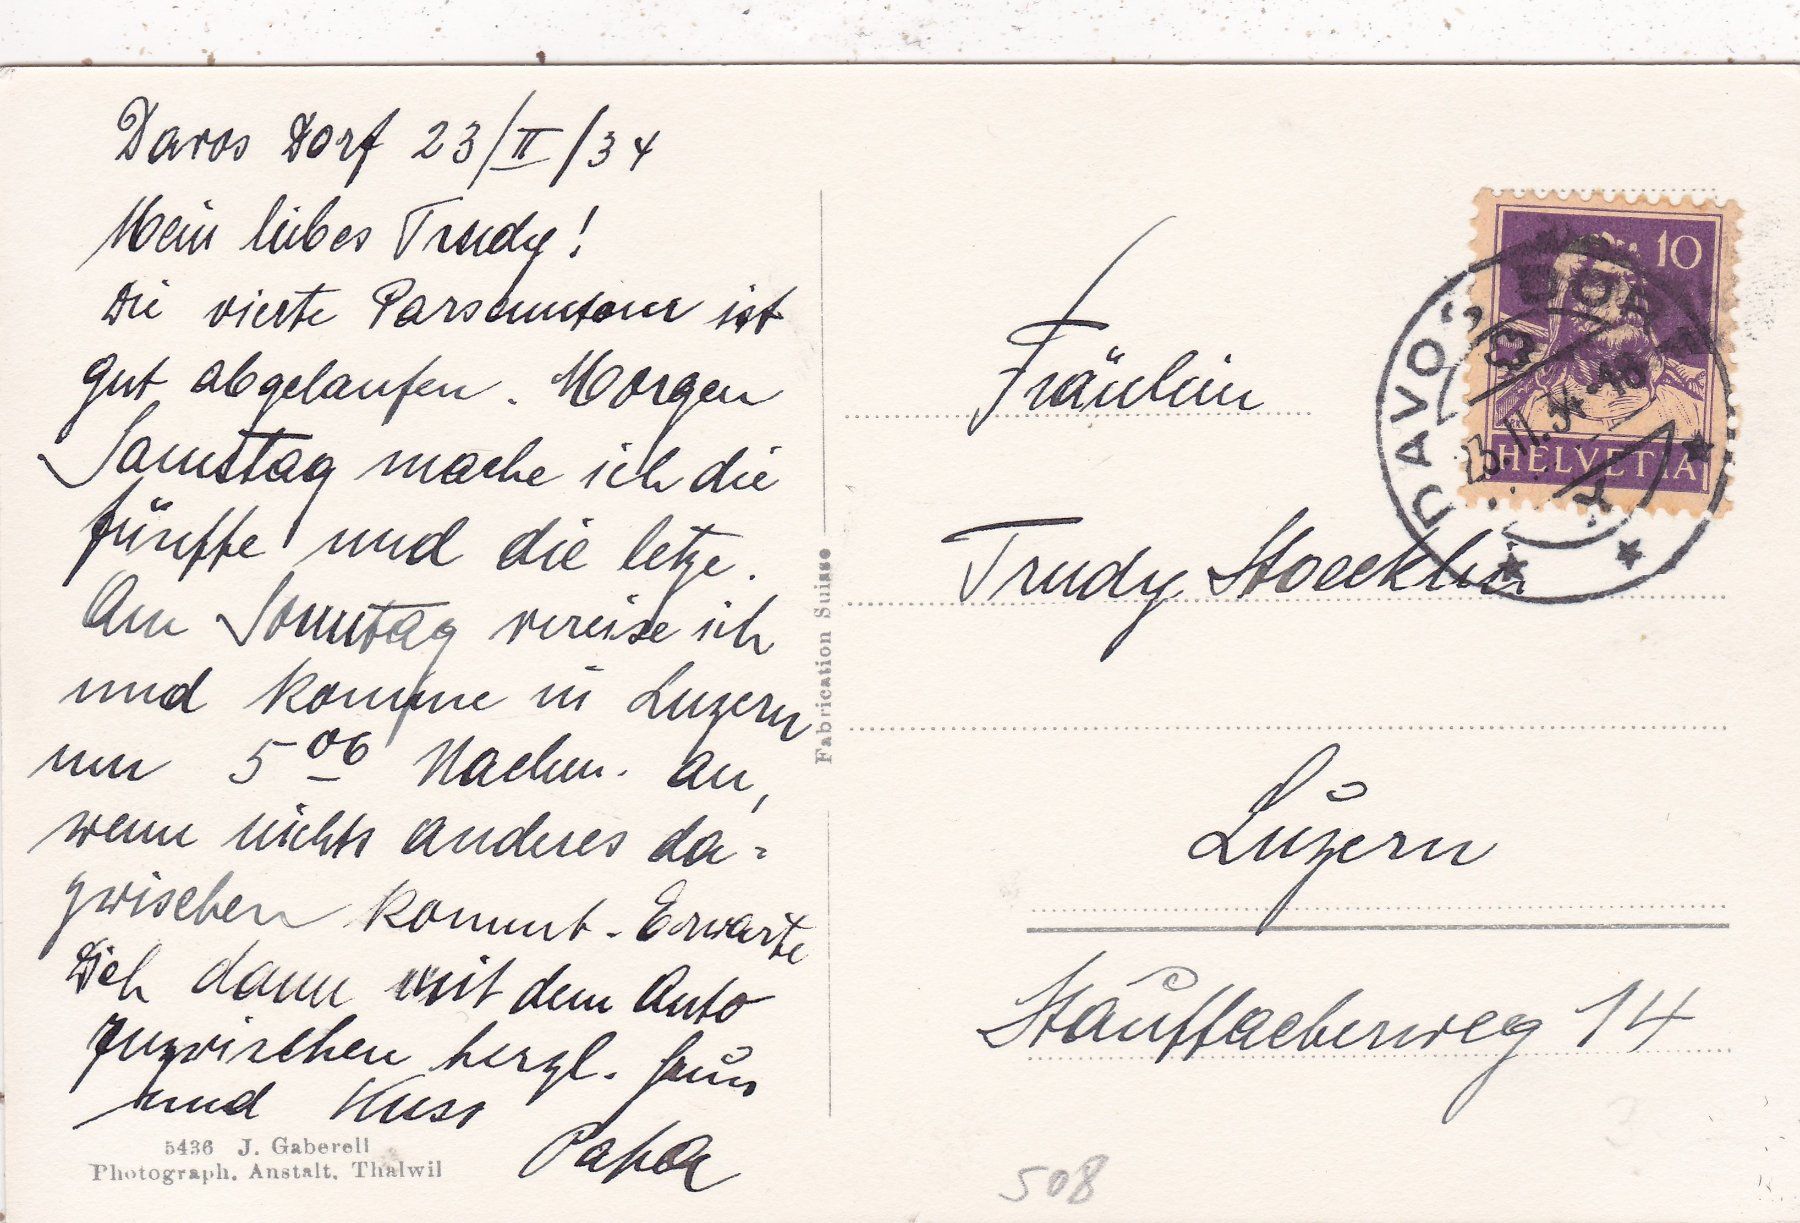 Davos Dorf 23/II/34
Mein liebes Trudy!
Die vierte Parsenntour ist
gut abgelaufen. Morgen
Samstag mache ich die
fünfte und die letze.
Am Sonntag vereise ich
und komme in Luzern
um 5 06 Nachm. an,
wenn nichts anderes da-
zwischen kommt. Erwarte
Dich dann mit dem Auto
Inzwischen herzl. Gruss
und Kuss
Papa
5436 J. Gaberell
Photograph. Anstalt, Thalwil
Fabrication Suisse
10
HELVETIA
DAVOS DORF
23.II.34.-18
Fräulein
Trudy Stoecklin
Luzern
Stauffacherweg 14
508